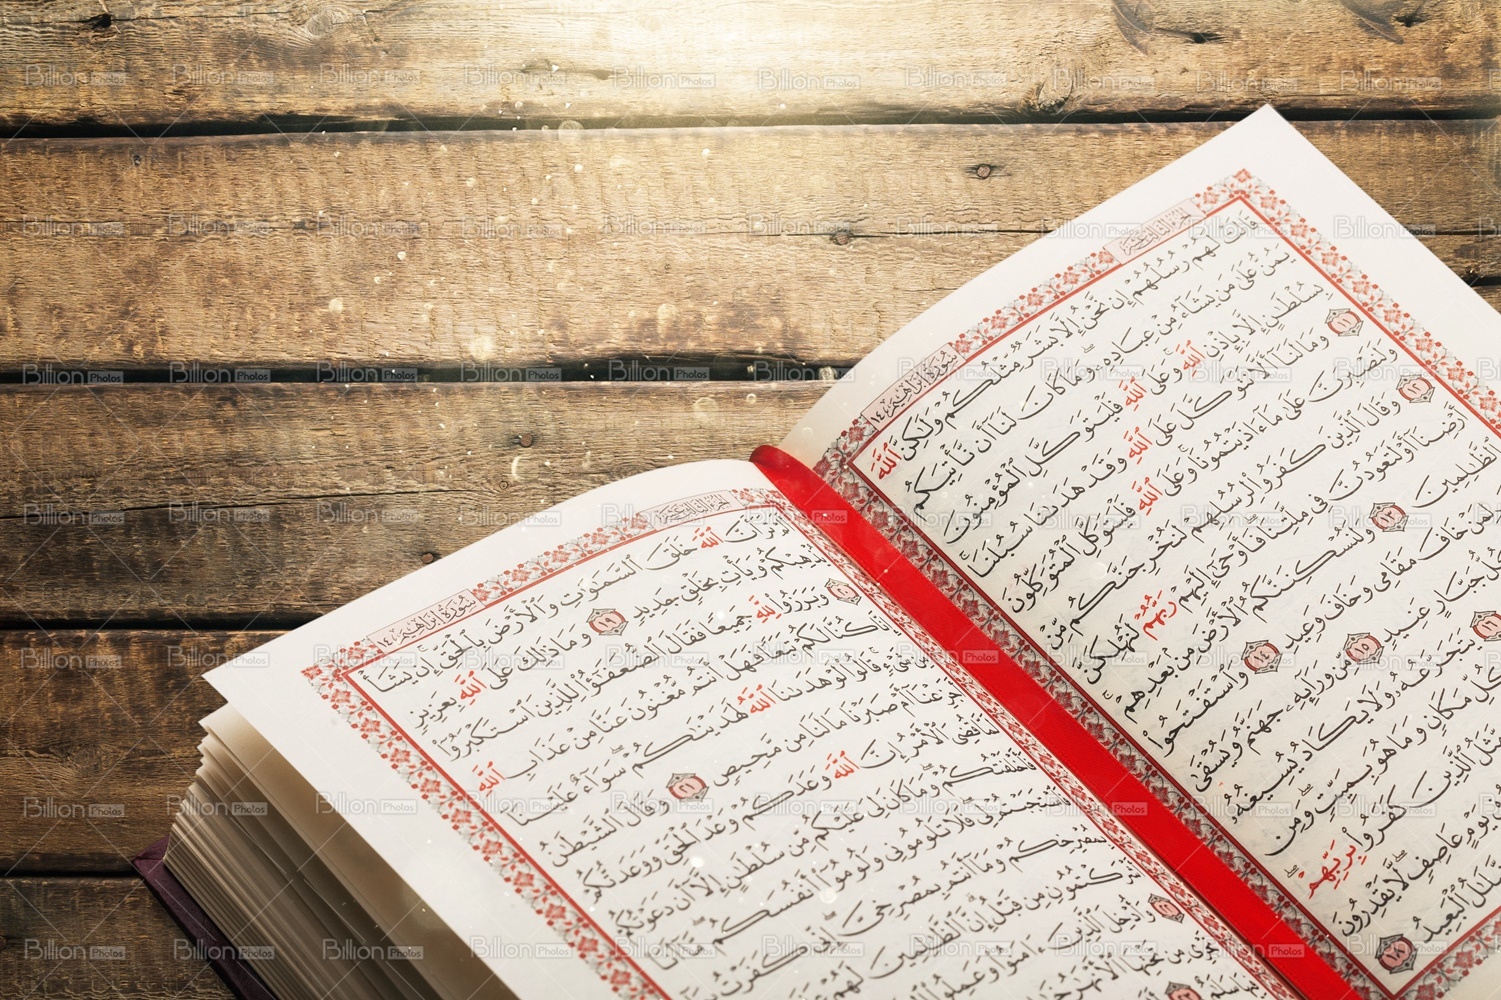 سُورَةُ إِبْرَاهِيمَ ١٤
قَالَتْ لَهُمْ رُسُلُهُمْ إِن نَّحْنُ إِلَّا بَشَرٌ مِّثْلُكُمْ وَلَٰكِنَّ ٱللَّهَ
يَمُنُّ عَلَىٰ مَن يَشَآءُ مِنْ عِبَادِهِۦ وَمَا كَانَ لَنَآ أَن نَّأْتِيَكُم
بِسُلْطَٰنٍ إِلَّا بِإِذْنِ ٱللَّهِ وَعَلَى ٱللَّهِ فَلْيَتَوَكَّلِ ٱلْمُؤْمِنُونَ
١١ وَمَا لَنَآ أَلَّا نَتَوَكَّلَ عَلَى ٱللَّهِ وَقَدْ هَدَىٰنَا سُبُلَنَا
وَلَنَصْبِرَنَّ عَلَىٰ مَآ ءَاذَيْتُمُونَا وَعَلَى ٱللَّهِ فَلْيَتَوَكَّلِ ٱلْمُتَوَكِّلُونَ
١٢ وَقَالَ ٱلَّذِينَ كَفَرُوا۟ لِرُسُلِهِمْ لَنُخْرِجَنَّكُم مِّنْ
أَرْضِنَآ أَوْ لَتَعُودُنَّ فِى مِلَّتِنَا فَأَوْحَىٰٓ إِلَيْهِمْ رَبُّهُمْ لَنُهْلِكَنَّ
ٱلظَّٰلِمِينَ ١٣ وَلَنُسْكِنَنَّكُمُ ٱلْأَرْضَ مِنۢ بَعْدِهِمْ
لِمَنْ خَافَ مَقَامِى وَخَافَ وَعِيدِ ١٤ وَٱسْتَفْتَحُوا۟
كُلُّ جَبَّارٍ عَنِيدٍ ١٥ مِّن وَرَآئِهِۦ جَهَنَّمُ وَيُسْقَىٰ
١٦ يَتَجَرَّعُهُۥ وَلَا يَكَادُ يُسِيغُهُۥ
كُلِّ مَكَانٍ وَمَا هُوَ بِمَيِّتٍ وَمِن
مَّثَلُ ٱلَّذِينَ كَفَرُوا۟ بِرَبِّهِمْ
فِى يَوْمٍ عَاصِفٍ لَّا يَقْدِرُونَ
ٱلضَّلَٰلُ ٱلْبَعِيدُ ١٨
سُورَةُ إِبْرَاهِيمَ ١٤
تَرَ أَنَّ ٱللَّهَ خَلَقَ ٱلسَّمَٰوَٰتِ وَٱلْأَرْضَ بِٱلْحَقِّ إِن يَشَأْ
يُذْهِبْكُمْ وَيَأْتِ بِخَلْقٍ جَدِيدٍ ١٩ وَمَا ذَٰلِكَ عَلَى ٱللَّهِ بِعَزِيزٍ
٢٠ وَبَرَزُوا۟ لِلَّهِ جَمِيعًا فَقَالَ ٱلضُّعَفَٰٓؤُا۟ لِلَّذِينَ ٱسْتَكْبَرُوٓا۟
إِنَّا كُنَّا لَكُمْ تَبَعًا فَهَلْ أَنتُم مُّغْنُونَ عَنَّا مِنْ عَذَابِ ٱللَّهِ
مِن شَىْءٍ قَالُوا۟ لَوْ هَدَىٰنَا ٱللَّهُ لَهَدَيْنَٰكُمْ سَوَآءٌ عَلَيْنَآ
أَجَزِعْنَآ أَمْ صَبَرْنَا مَا لَنَا مِن مَّحِيصٍ ٢١ وَقَالَ ٱلشَّيْطَٰنُ
لَمَّا قُضِىَ ٱلْأَمْرُ إِنَّ ٱللَّهَ وَعَدَكُمْ وَعْدَ ٱلْحَقِّ وَوَعَدتُّكُمْ
فَأَخْلَفْتُكُمْ وَمَا كَانَ لِىَ عَلَيْكُم مِّن سُلْطَٰنٍ إِلَّآ أَن دَعَوْتُكُمْ
فَٱسْتَجَبْتُمْ لِى فَلَا تَلُومُونِى وَلُومُوٓا۟ أَنفُسَكُم مَّآ أَنَا۠
بِمُصْرِخِكُمْ وَمَآ أَنتُم بِمُصْرِخِىَّ إِنِّى كَفَرْتُ
أَشْرَكْتُمُونِ مِن قَبْلُ إِنَّ ٱلظَّٰلِمِينَ لَهُمْ
٢٢ وَأُدْخِلَ ٱلَّذِينَ ءَامَنُوا۟ وَعَمِلُوا۟
تَجْرِى مِن تَحْتِهَا ٱلْأَنْهَٰرُ